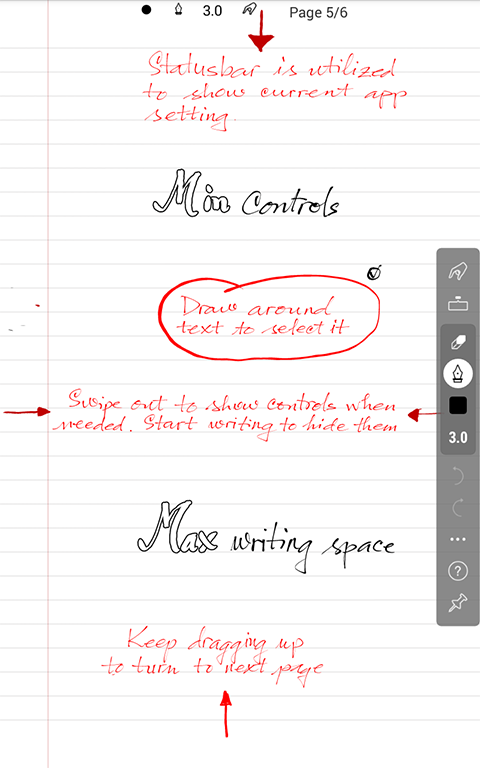 3.0 Page 5/6
Statusbar is utilized
to show current app
setting.
Min Controls
Draw around
text to select it
Swipe out to show controls when
needed. Start writing to hide them
3.0
Max writing space
?
Keep dragging up
to turn to next page